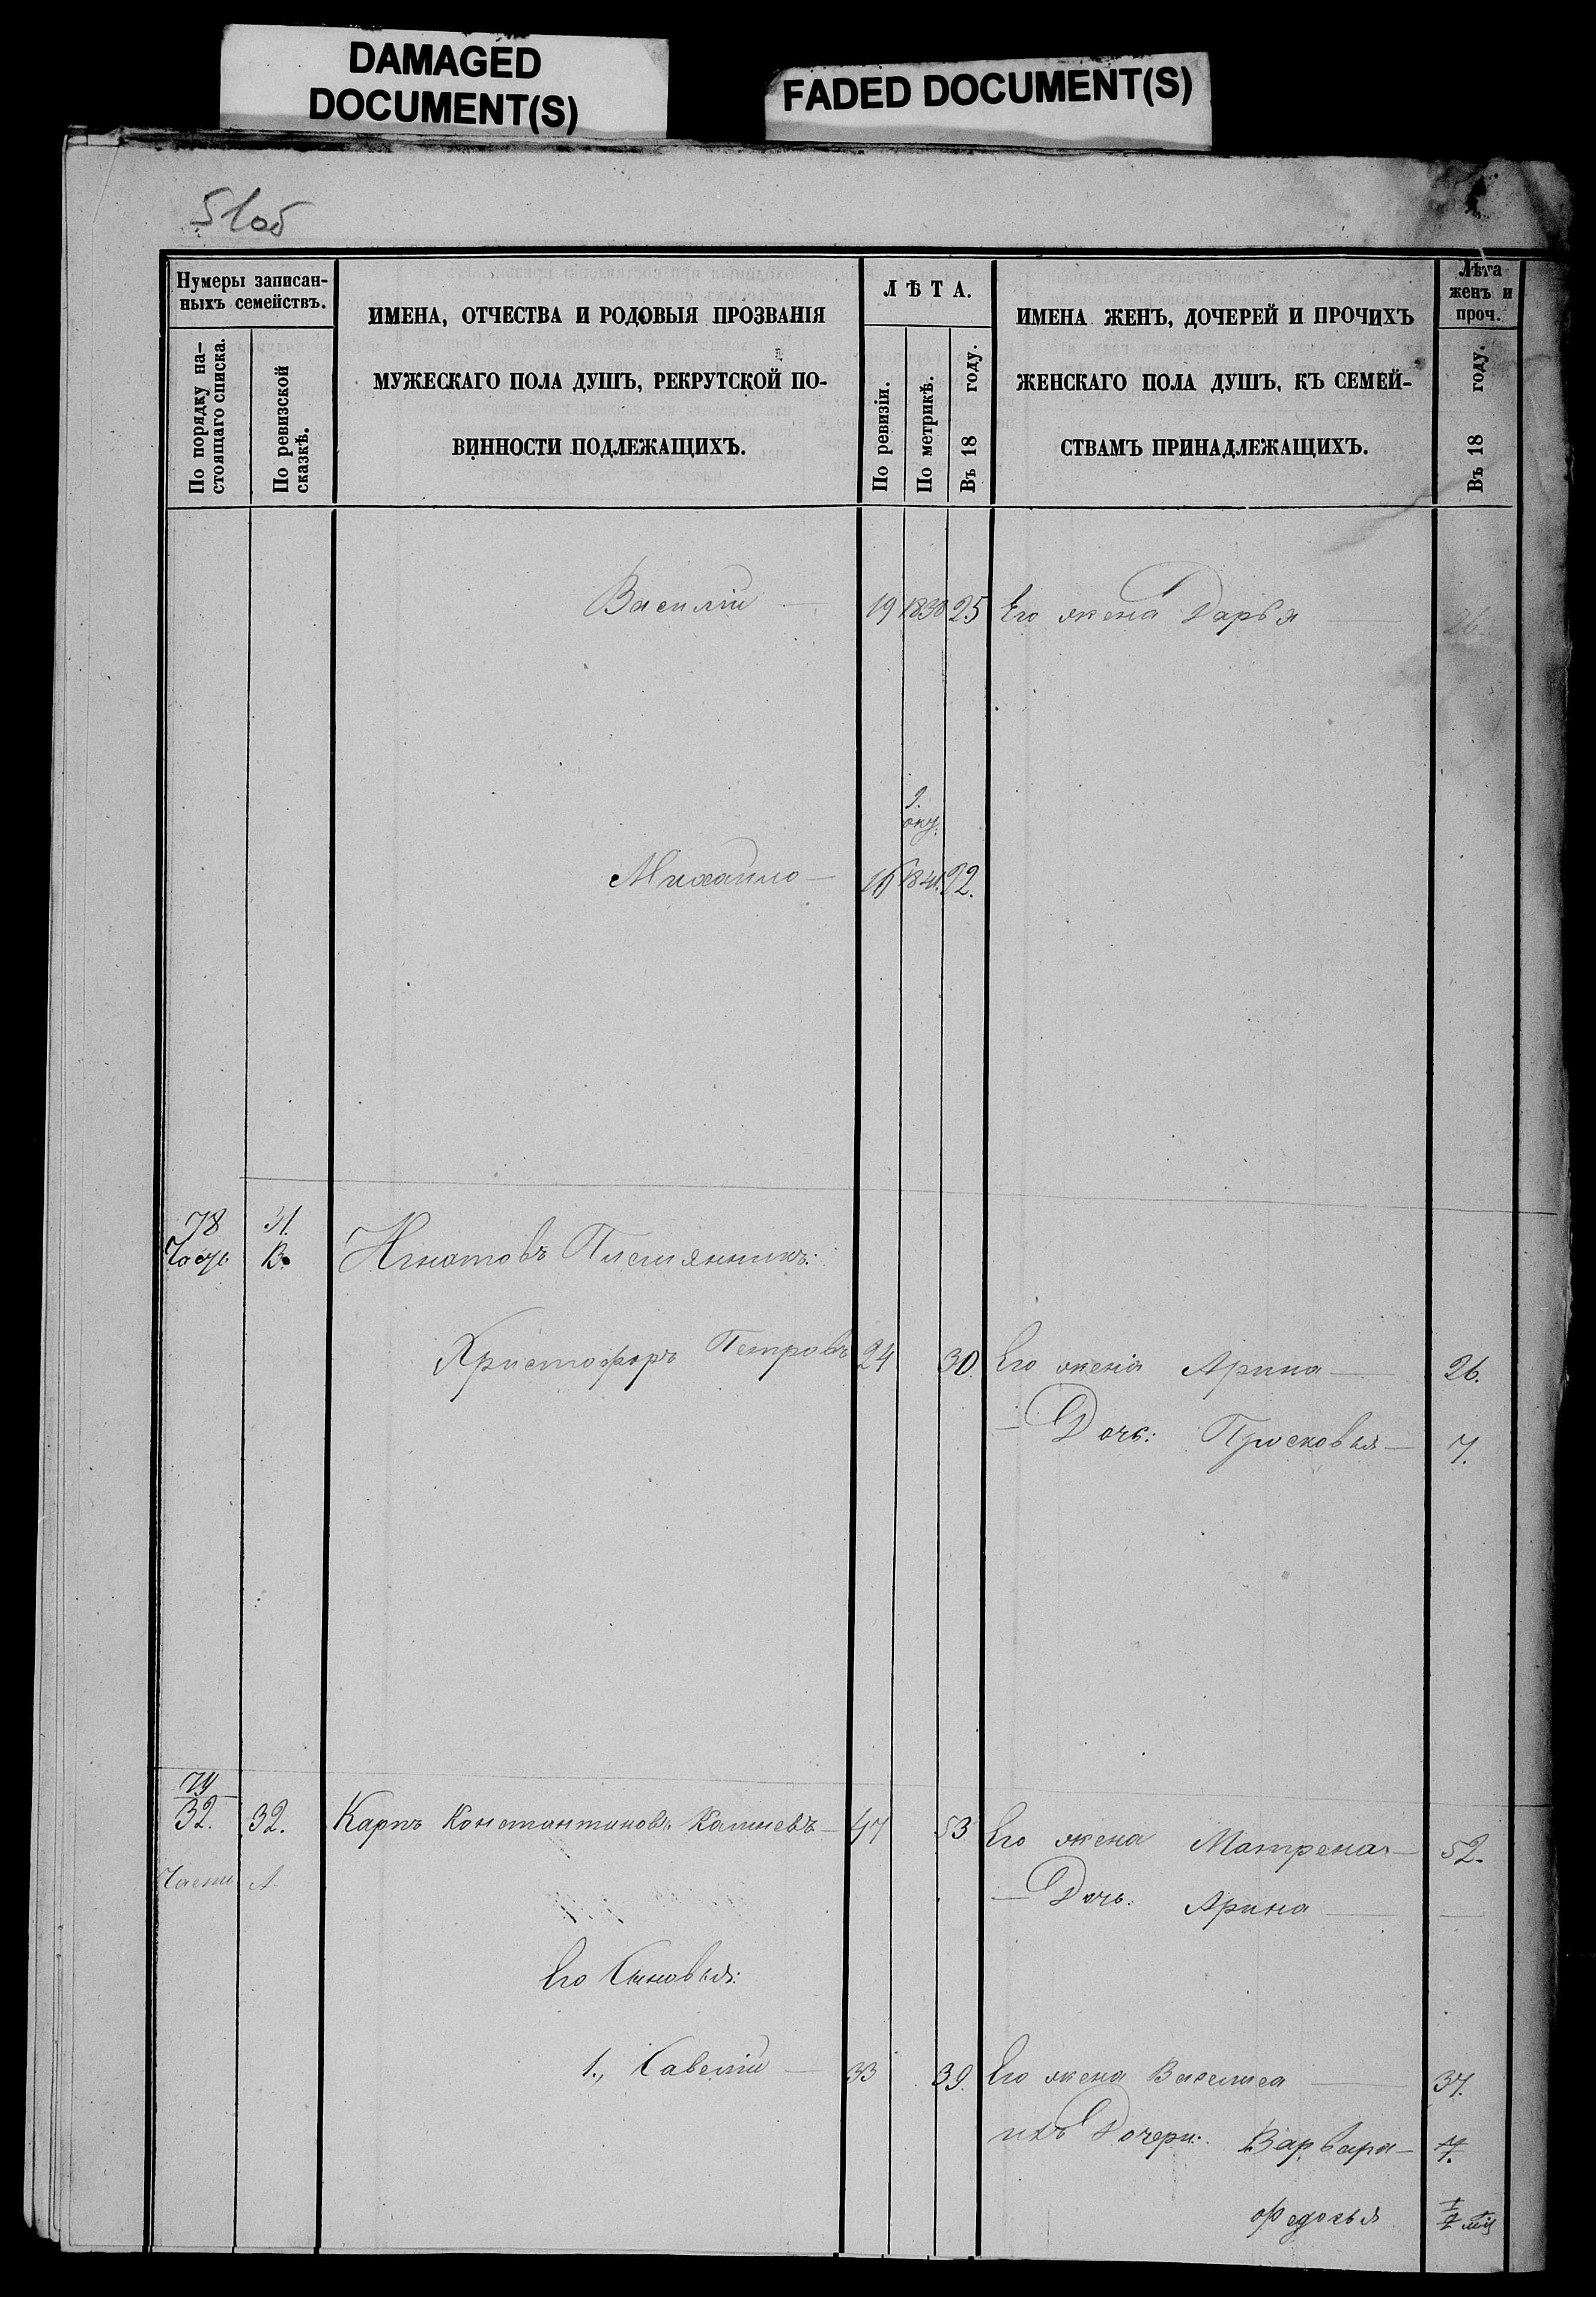 DAMAGED
DOCUMENT(S)
FADED DOCUMENT(S)
51об
Нумеры записан-
ныхъ семействъ.
По порядку на-
стоящаго списка.
По ревизской
сказкѣ.
ИМЕНА, ОТЧЕСТВА И РОДОВЫЯ ПРОЗВАНІЯ
МУЖЕСКАГО ПОЛА ДУШЪ, РЕКРУТСКОЙ ПО-
ВИННОСТИ ПОДЛЕЖАЩИХЪ.
ЛѢТА.
По ревизіи.
По метрикѣ.
Въ 18 году.
ИМЕНА ЖЕНЪ, ДОЧЕРЕЙ И ПРОЧИХЪ
ЖЕНСКАГО ПОЛА ДУШЪ, КЪ СЕМЕЙ-
СТВАМЪ ПРИНАДЛЕЖАЩИХЪ.
Лѣта
женъ и
проч.
Въ 18 году.
Василій — 19 1838 25 Его жена Дарья — 26
Михайло — 16 1841. 22.
78 31.
Часть В. Игнатовъ Племянникъ:
Христофоръ Петровъ 24 30. Его жена Арина — 26.
— Дочь: Просковья — 7.
79
32. 32. Карпъ Константиновъ — 47 53 Его жена Матрена — 52.
Части А — Дочь: Арина — —
Его Сыновья:
1., Савелій — 33 39. Его жена Василиса — 37.
ихъ Дочери: Варвара —
Федосья